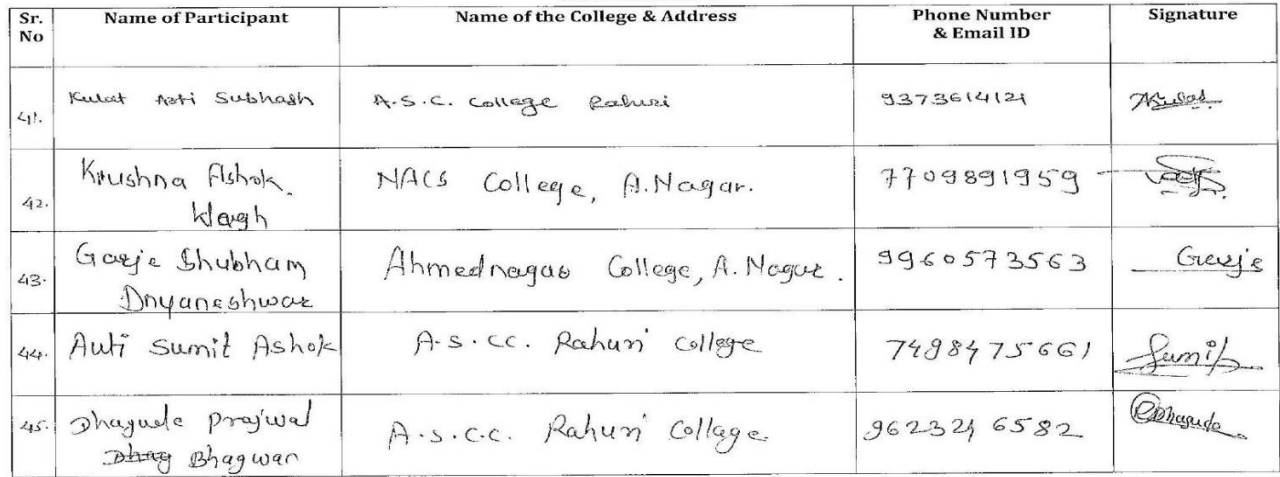 Sr. No Name of Participant Name of the College & Address Phone Number & Email ID Signature
41. Kulat Arti Subhash A.S.C. College Rahuri 9373614121 Kulat
42. Krushna Ashok Wagh NACS College, A.Nagar. 7709891959
43. Garje Shubham Dnyaneshwar Ahmednagar College, A.Nagar. 9960573563 Garje
44. Auti Sumit Ashok A.S.CC. Rahuri College 7498475661 Sumit
45. Dhagude Prajwal Dhag Bhagwan A.S.C.C. Rahuri Collage 9623246582 PDhagude